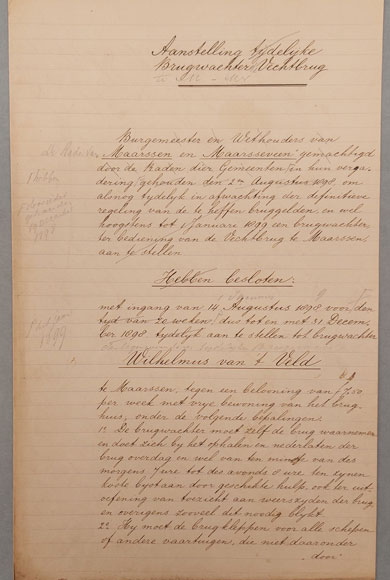 Aanstelling tydelyke
Brugwachter Vechtbrug
Burgemeester en Wethouders van
Maarssen en Maarsseveen gemachtigd
door de Raden dier Gemeenten in hun verga-
dering gehouden den 2en Augustus 1898 om
alsnog tydelyk in afwachting der definitieve
regeling van de te heffen bruggelden en wel
hoogstens tot 1 Januari 1899 een brugwachter
ter bediening van de Vechtbrug te Maarssen
aan te stellen
Hebben besloten:
met ingang van 14 Augustus 1898 voor den
tyd van 20 weken dus tot en met 31 Decem-
ber 1898 tydelyk aan te stellen tot brugwachter
Wilhelmus van 't Veld
te Maarssen, tegen een belooning van f 7,50
per week met vrye bewoning van het brug-
huis, onder de volgende bepalingen:
1o De brugwachter moet zelf de brug waarnemen
en doet zich by het ophalen en nederlaten der
brug overdag en wel van ten minste van des
morgens 7 ure tot des avonds 8 ure ten zynen
koste bystaan door geschikte hulp, ook ter uit-
oefening van toezicht aan weerszyden der brug
en overigens zooveel dit noodig blykt.
2o Hy moet de brugkleppen voor alle schepen
of andere vaartuigen, die niet daaronder
door
1899